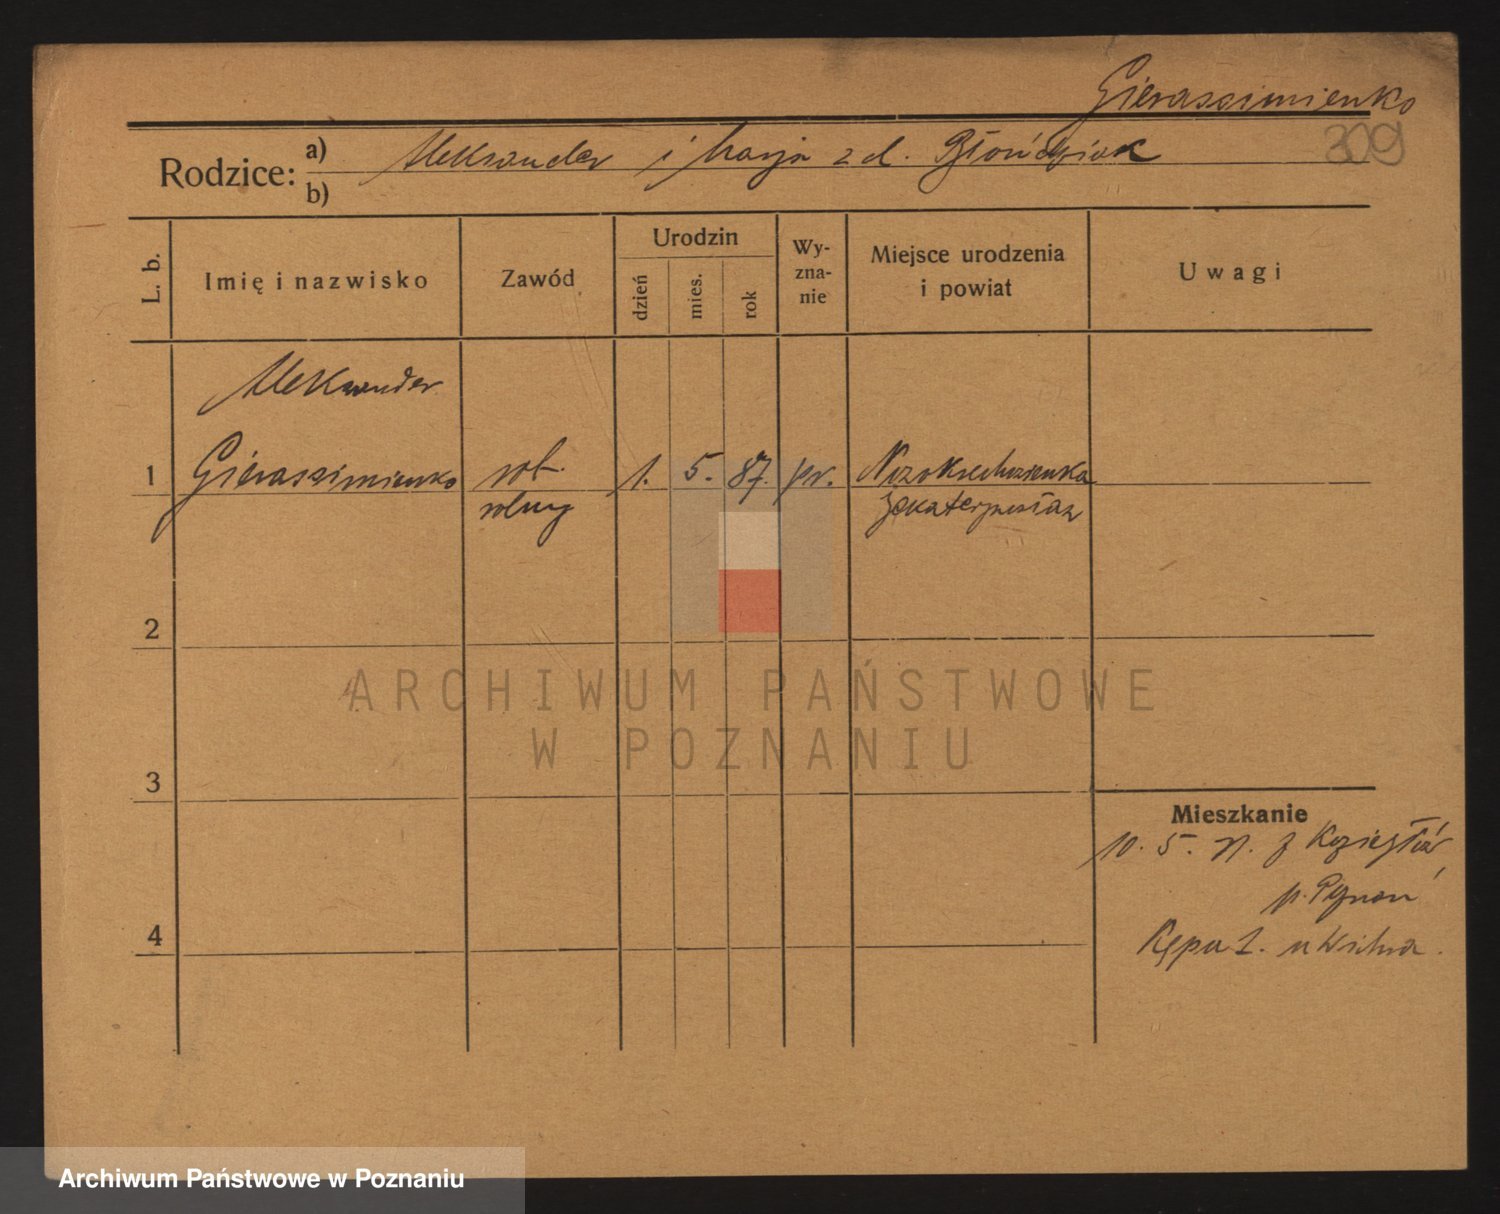 Gierassimienko
309
Rodzice: a) Aleksander i Marja z d. Błońdziak
b)
L. b.
Imię i nazwisko
Zawód
Urodzin
dzień
mies.
rok
Wy-
zna-
nie
Miejsce urodzenia
i powiat
Uwagi
Aleksander
1 Gierassimienko rob. 1. 5. 87. pr.
rolny
2
3
4
Mieszkanie
10. 5. z
p.
Kępa 1. u
ARCHIWUM PAŃSTWOWE
W POZNANIU
Archiwum Państwowe w Poznaniu